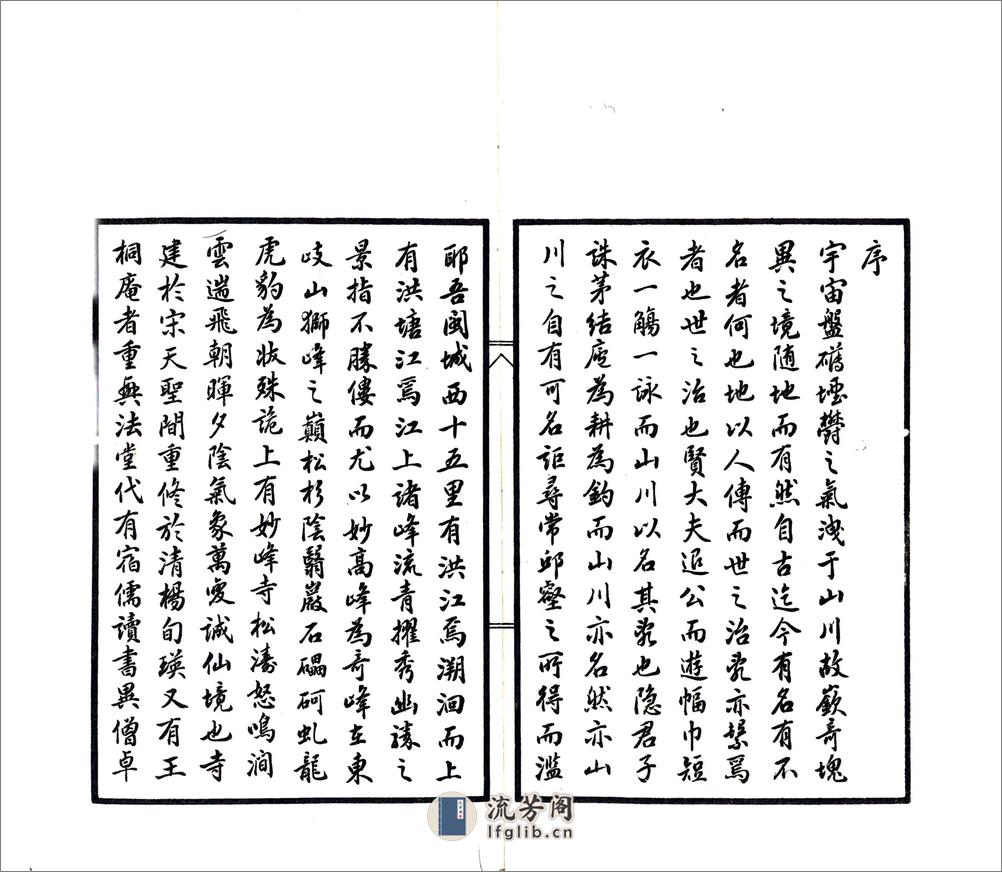 序
宇宙盤礴堙鬱之氣洩于山川故嶔奇塊
異之境随地而有然自古迄今有名有不
名者何也地以人傳而世之治亂亦繫焉
者也世之治也賢大夫退公而遊幅巾短
衣一觴一詠而山川以名其亂也隐君子
誅茅結庵為耕為釣而山川亦名然亦山
川之自有可名詎尋常邱壑之所得而濫
耶吾閩城西十五里有洪江焉溯洄而上
有洪塘江焉江上諸峰流青擢秀幽
之
景指不勝僂而尤以妙高峰為奇峰在東
岐山獅峰之巔松杉陰翳巖石礧砢虬龍
虎豹為狀殊詭上有妙峰寺松濤怒鳴澗
雲遄飛朝暉夕陰氣象萬變誠仙境也寺
建於宋天聖間重修於清楊旬瑛又有王
桐庵者重興法堂代有宿儒讀書異僧卓
流芳阁
lfglib.cn